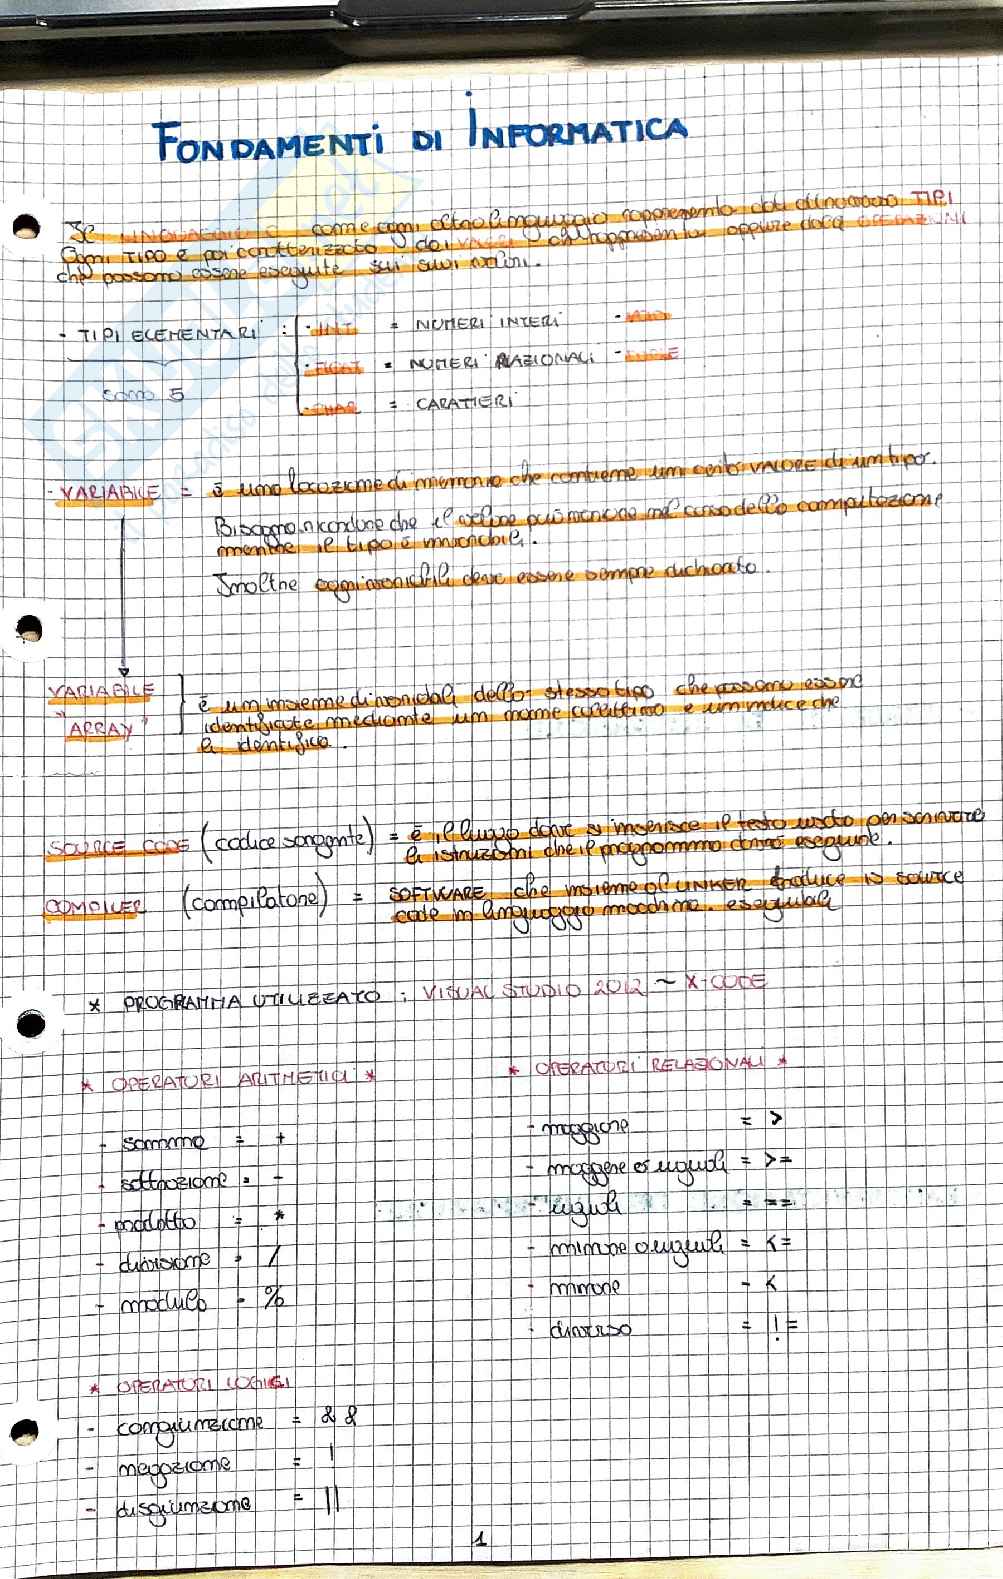 FONDAMENTI DI INFORMATICA
Il LINGUAGGIO C come ogni altro linguaggio rappresenta dati di numerosi TIPI
Ogni TIPO è poi caratterizzato dai VALORI che rappresenta oppure dalle OPERAZIONI
che possono essere eseguite sui suoi valori.
- TIPI ELEMENTARI : - INT = NUMERI INTERI - VOID
- FLOAT = NUMERI RAZIONALI - DOUBLE
sono 5
- CHAR = CARATTERI
- VARIABILE = è una locazione di memoria che contiene un certo VALORE di un tipo.
Bisogna ricordare che il valore può variare nel corso della computazione
mentre il tipo è invariabile.
Inoltre ogni variabile deve essere sempre dichiarata.
VARIABILE "ARRAY" è un insieme di variabili dello stesso tipo che possono essere
identificate mediante un nome collettivo e un indice che
le identifica.
SOURCE CODE (codice sorgente) = è il luogo dove si inserisce il testo usato per scrivere
le istruzioni che il programma dovrà eseguire.
COMPILER (compilatore) = SOFTWARE che insieme al LINKER traduce il source
code in linguaggio macchina. eseguibile
* PROGRAMMA UTILIZZATO : VISUAL STUDIO 2012 ~ X-CODE
* OPERATORI ARITMETICI *
- somma = +
- sottrazione = -
- prodotto = *
- divisione = /
- modulo = %
* OPERATORI RELAZIONALI *
- maggiore = >
- maggiore o uguale = >=
- uguale = ==
- minore o uguale = <=
- minore = <
- diverso = !=
* OPERATORI LOGICI
- congiunzione = &&
- negazione = !
- disgiunzione = ||
1